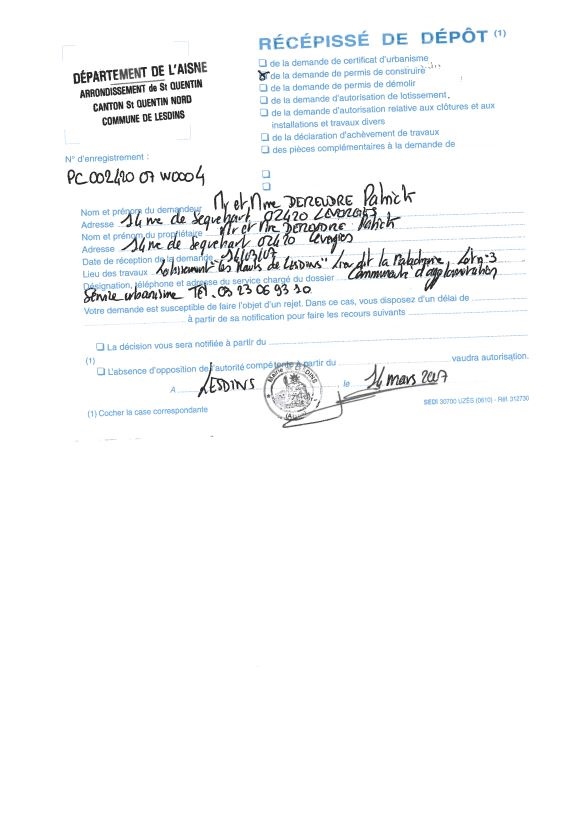 RÉCÉPISSÉ DE DÉPÔT (1)
DÉPARTEMENT DE L'AISNE
ARRONDISSEMENT de St QUENTIN
CANTON St QUENTIN NORD
COMMUNE DE LESDINS
de la demande de certificat d'urbanisme
de la demande de permis de construire
de la demande de permis de démolir
de la demande d'autorisation de lotissement
de la demande d'autorisation relative aux clôtures et aux
installations et travaux divers
de la déclaration d'achèvement de travaux
des pièces complémentaires à la demande de
N° d'enregistrement :
PC 002420 07 W0004
Nom et prénom du demandeur Mr et Mme DEREUDRE Patrick
Adresse 14 rue de Sequehart 02420 LEVERGIES
Nom et prénom du propriétaire Mr et Mme DEREUDRE Patrick
Adresse 14 rue de Sequehart 02420 Levergies
Date de réception de la demande 14/03/07
Lieu des travaux Lotissement "Les Hauts de Lesdins" Lieu dit la, Lot n°3
Désignation, téléphone et adresse du service chargé du dossier Communauté d'agglomération
Service urbanisme Tél. 03 23 06 93 10
Votre demande est susceptible de faire l'objet d'un rejet. Dans ce cas, vous disposez d'un délai de
à partir de sa notification pour faire les recours suivants
La décision vous sera notifiée à partir du
(1)
L'absence d'opposition de l'autorité compétente à partir du vaudra autorisation.
A LESDINS le 14 mars 2007
(1) Cocher la case correspondante
SEDI 30700 UZÈS (0610) - Réf. 312730